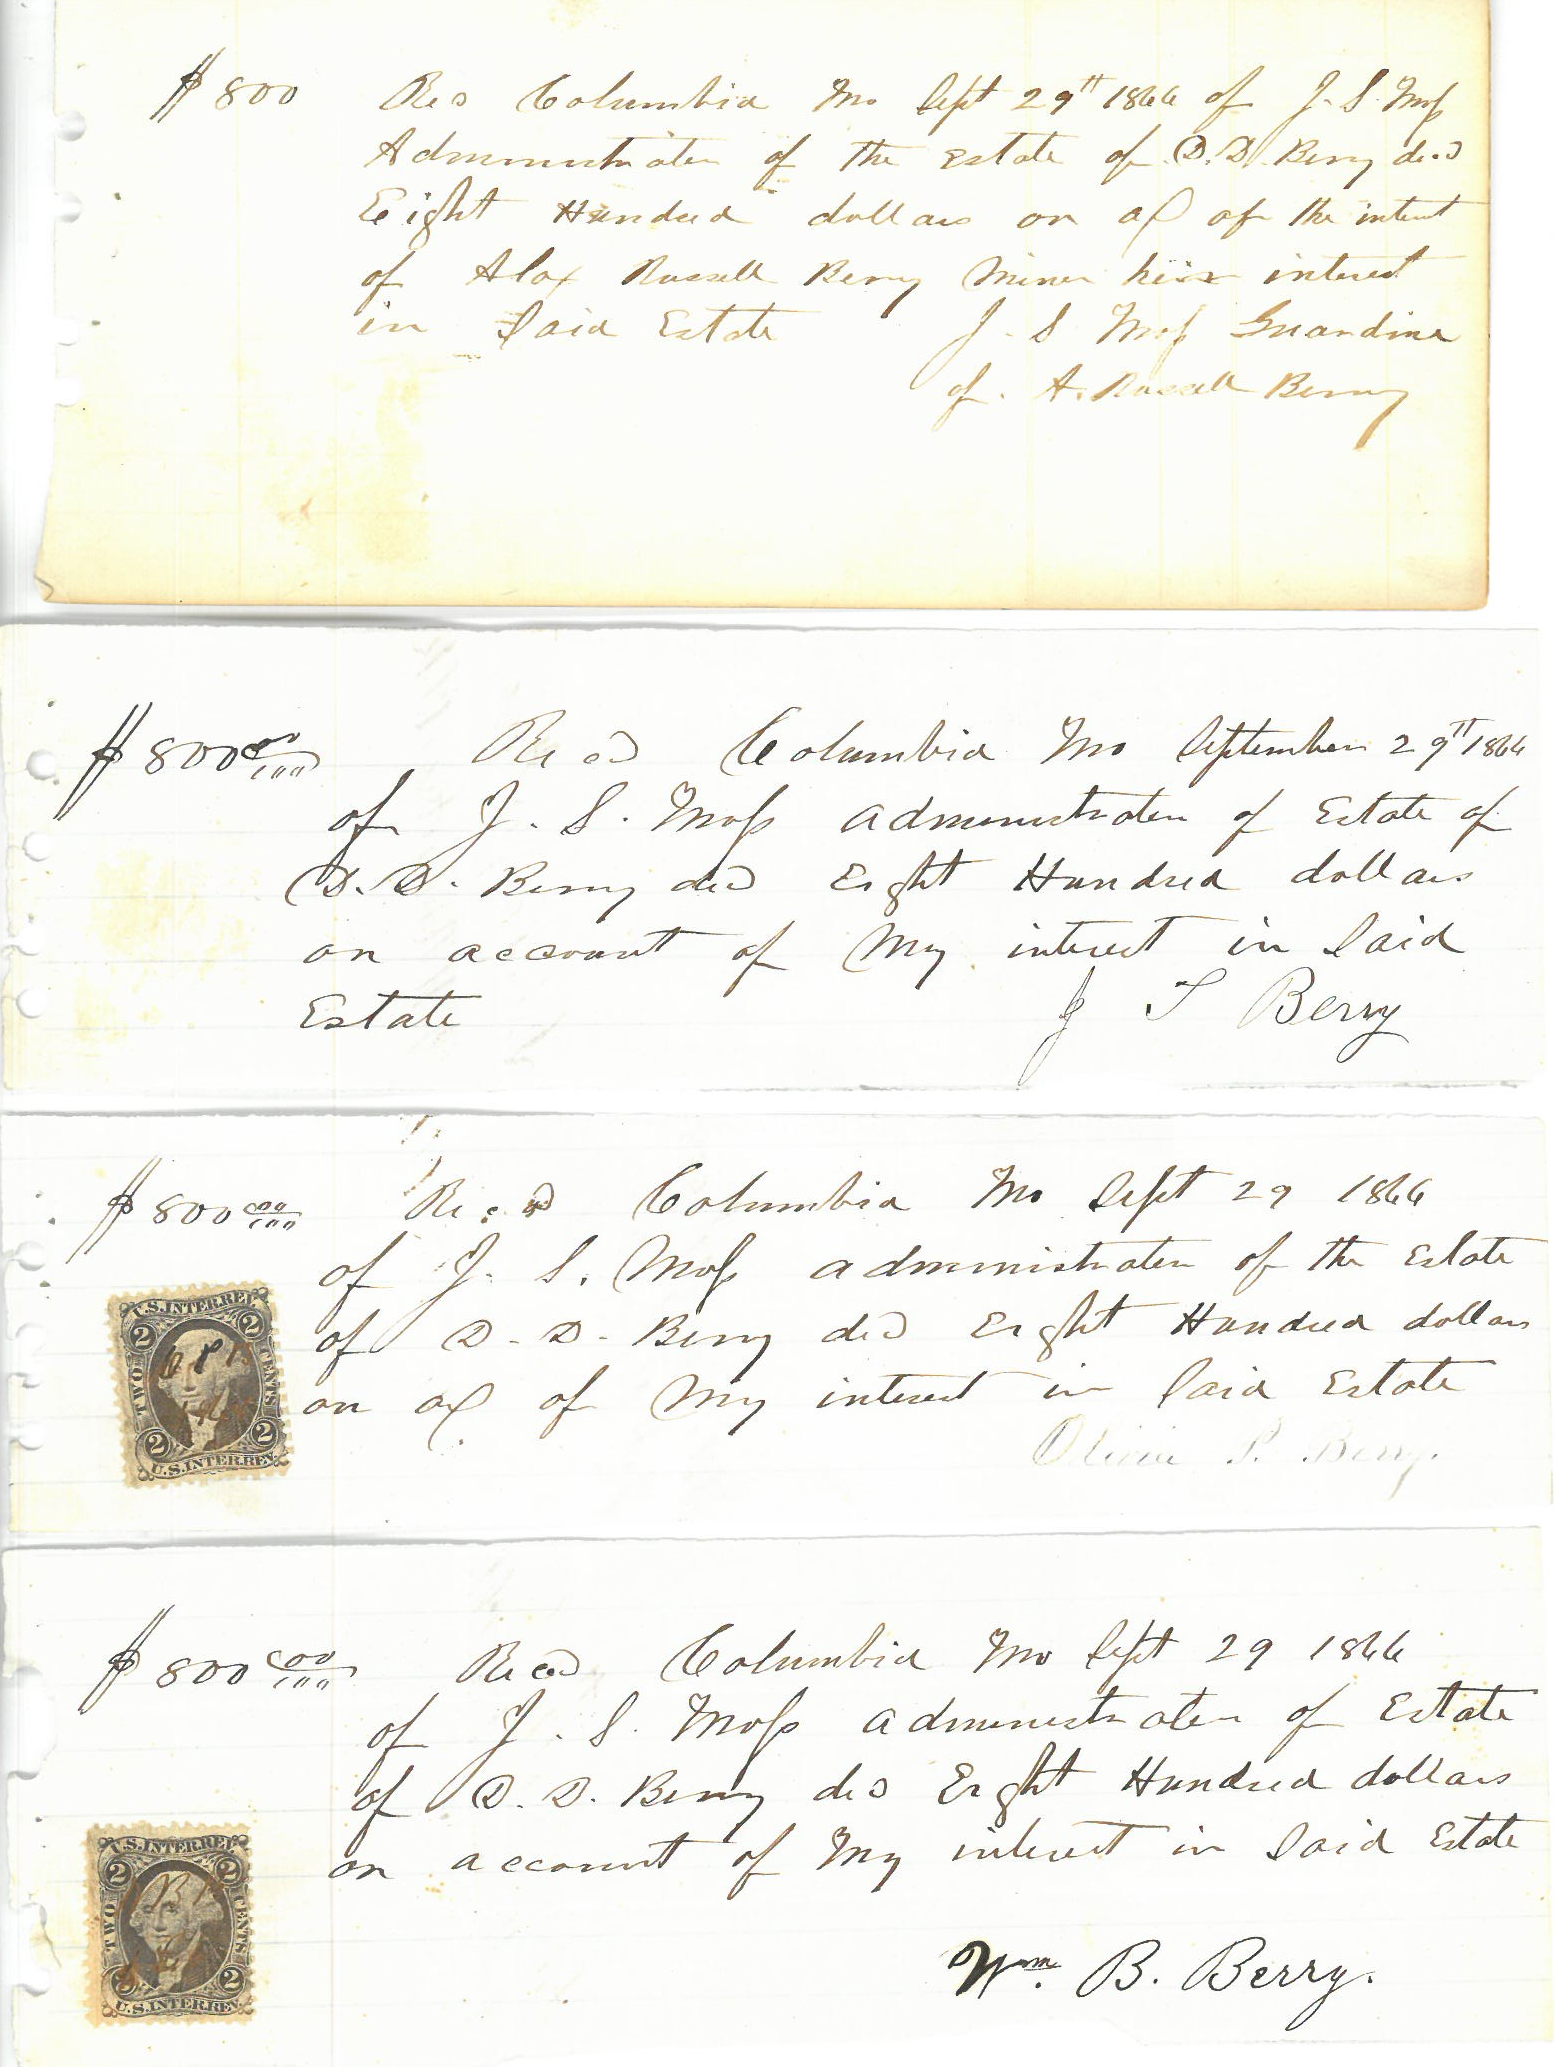 $800 Recd Columbia Mo Sept 29th 1866 of J. S. Moss
Administrator of the Estate of D. D. Berry decd
Eight Hundred dollars on a/c of the interest
of Alex Russell Berry Minor heir interest
in Said Estate J. S Moss Guardine
of. A. Russell Berry
$800 00/100 Recd Columbia Mo September 29th 1866
of J. S. Moss administrator of Estate of
D. D. Berry decd Eight Hundred dollars
on account of My interest in Said
Estate J T Berry
$800 00/100 Recd Columbia Mo Sept 29 1866
of J. S. Moss administrator of the Estate
of D. D. Berry decd Eight Hundred dollars
on a/c of My interest in Said Estate
Olivia P. Berry.
U.S. INTER. REV.
2 2
TWO CENTS
2 2
U.S. INTER. REV.
$800 00/100 Recd Columbia Mo Sept 29 1866
of J. S. Moss administrator of Estate
of D. D. Berry decd Eight Hundred dollars
on account of My interest in Said Estate
Wm. B. Berry.
U.S. INTER. REV.
2 2
TWO CENTS
2 2
U.S. INTER. REV.